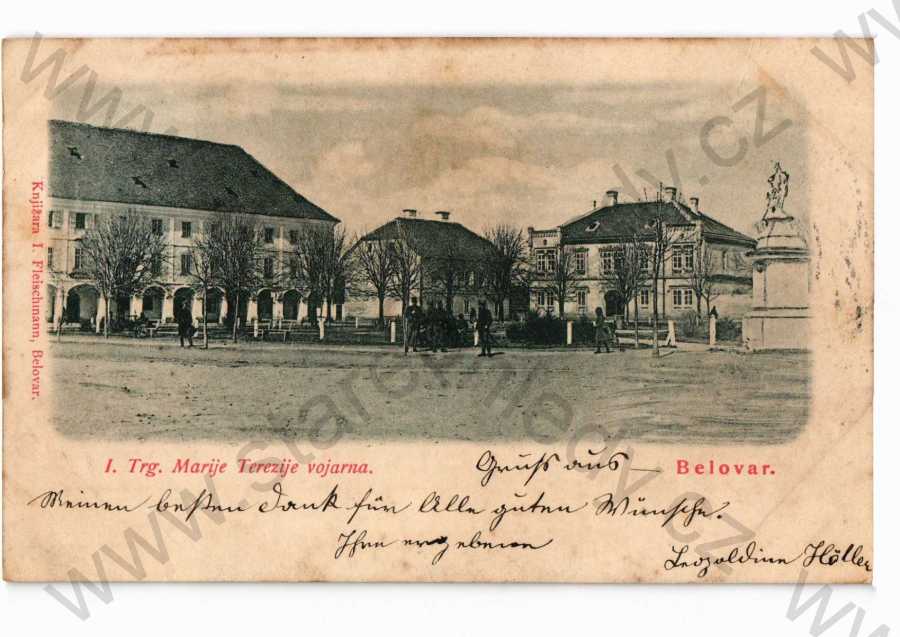 Knjižara I. Fleischmann, Belovar.
I. Trg. Marije Terezije vojarna.
Gruss aus — Belovar.
Meinen besten Dank für Alle guten Wünsche.
Ihre ergebene
Leopoldine Höller
www.starepohledy.cz